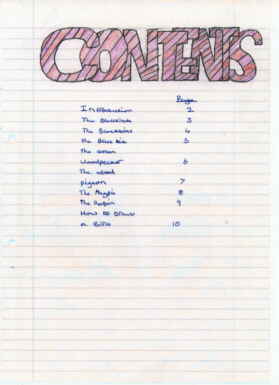 CONTENTS
Page
Introduction 2
The Blackbird 3
The 4
The Blue tit 5
The Green
Woodpecker 6
The wood
pigeon 7
The Magpie 8
The Robin 9
How to Draw
a Bird 10